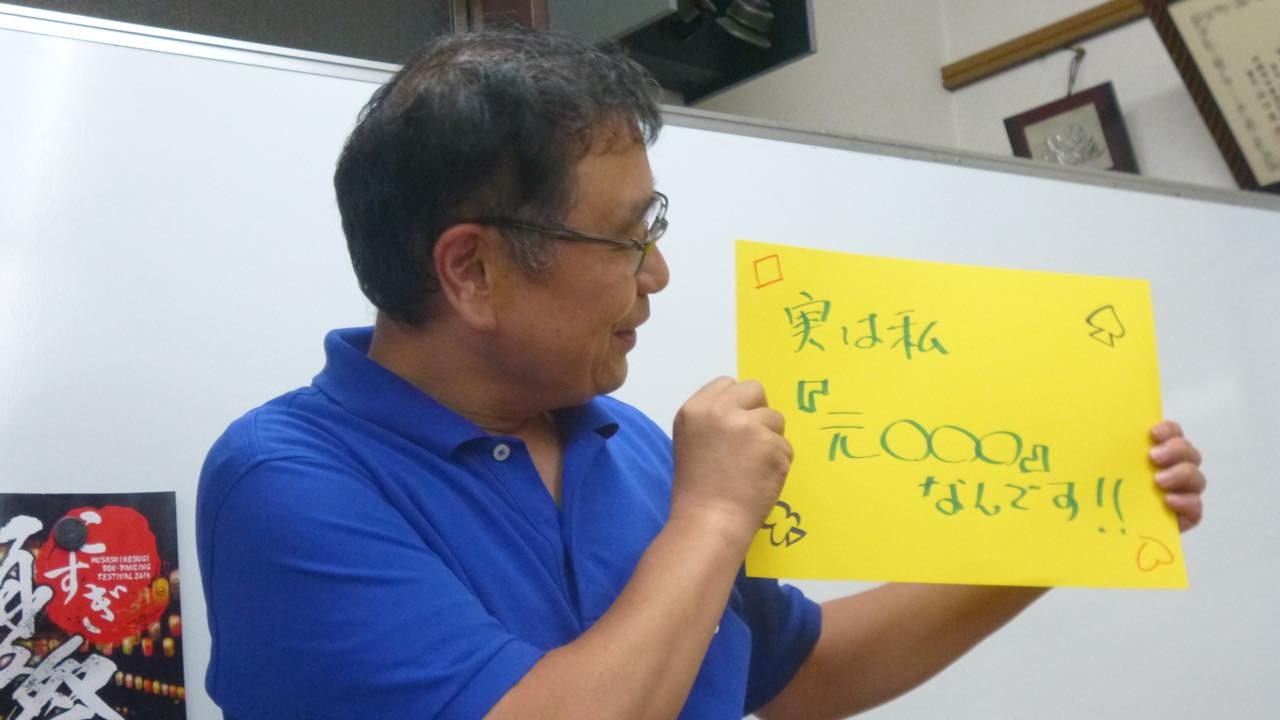 実は私
『元〇〇〇』
なんです!!
こすぎ
MUSASHI KOSUGI
BON-DANCING
FESTIVAL 2014
夏祭